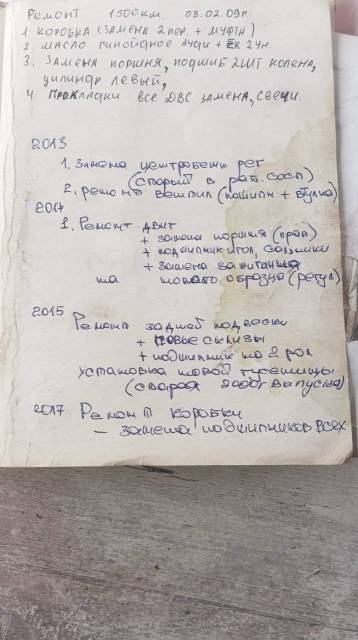 Ремонт 1500км. 08.02.09г.
1. Коробка (замена 2 пер. + муфты)
2. Масло гипойдное Ауди + 2 ун.
3. Замена поршня, подшиб 2шт колена,
цилиндр левый,
4. Прокладки все ДВС замена, свечи.
2013
1. Замена центробежн рег
(старый в раб. сост)
2. ремонт вентил (подшипн + втулка)
2014
1. Ремонт двиг
+ замена поршня (прав)
+ подшипник игол, сальники
+ замена зажигания
на нового образца (регул)
2015
Ремонт задней подвески
+ новые слизы
+ подшипник на 2 рол
Установка новой гусеницы
(старая 2006г выпуска)
2017 Ремонт коробки
- замена подшипников всех